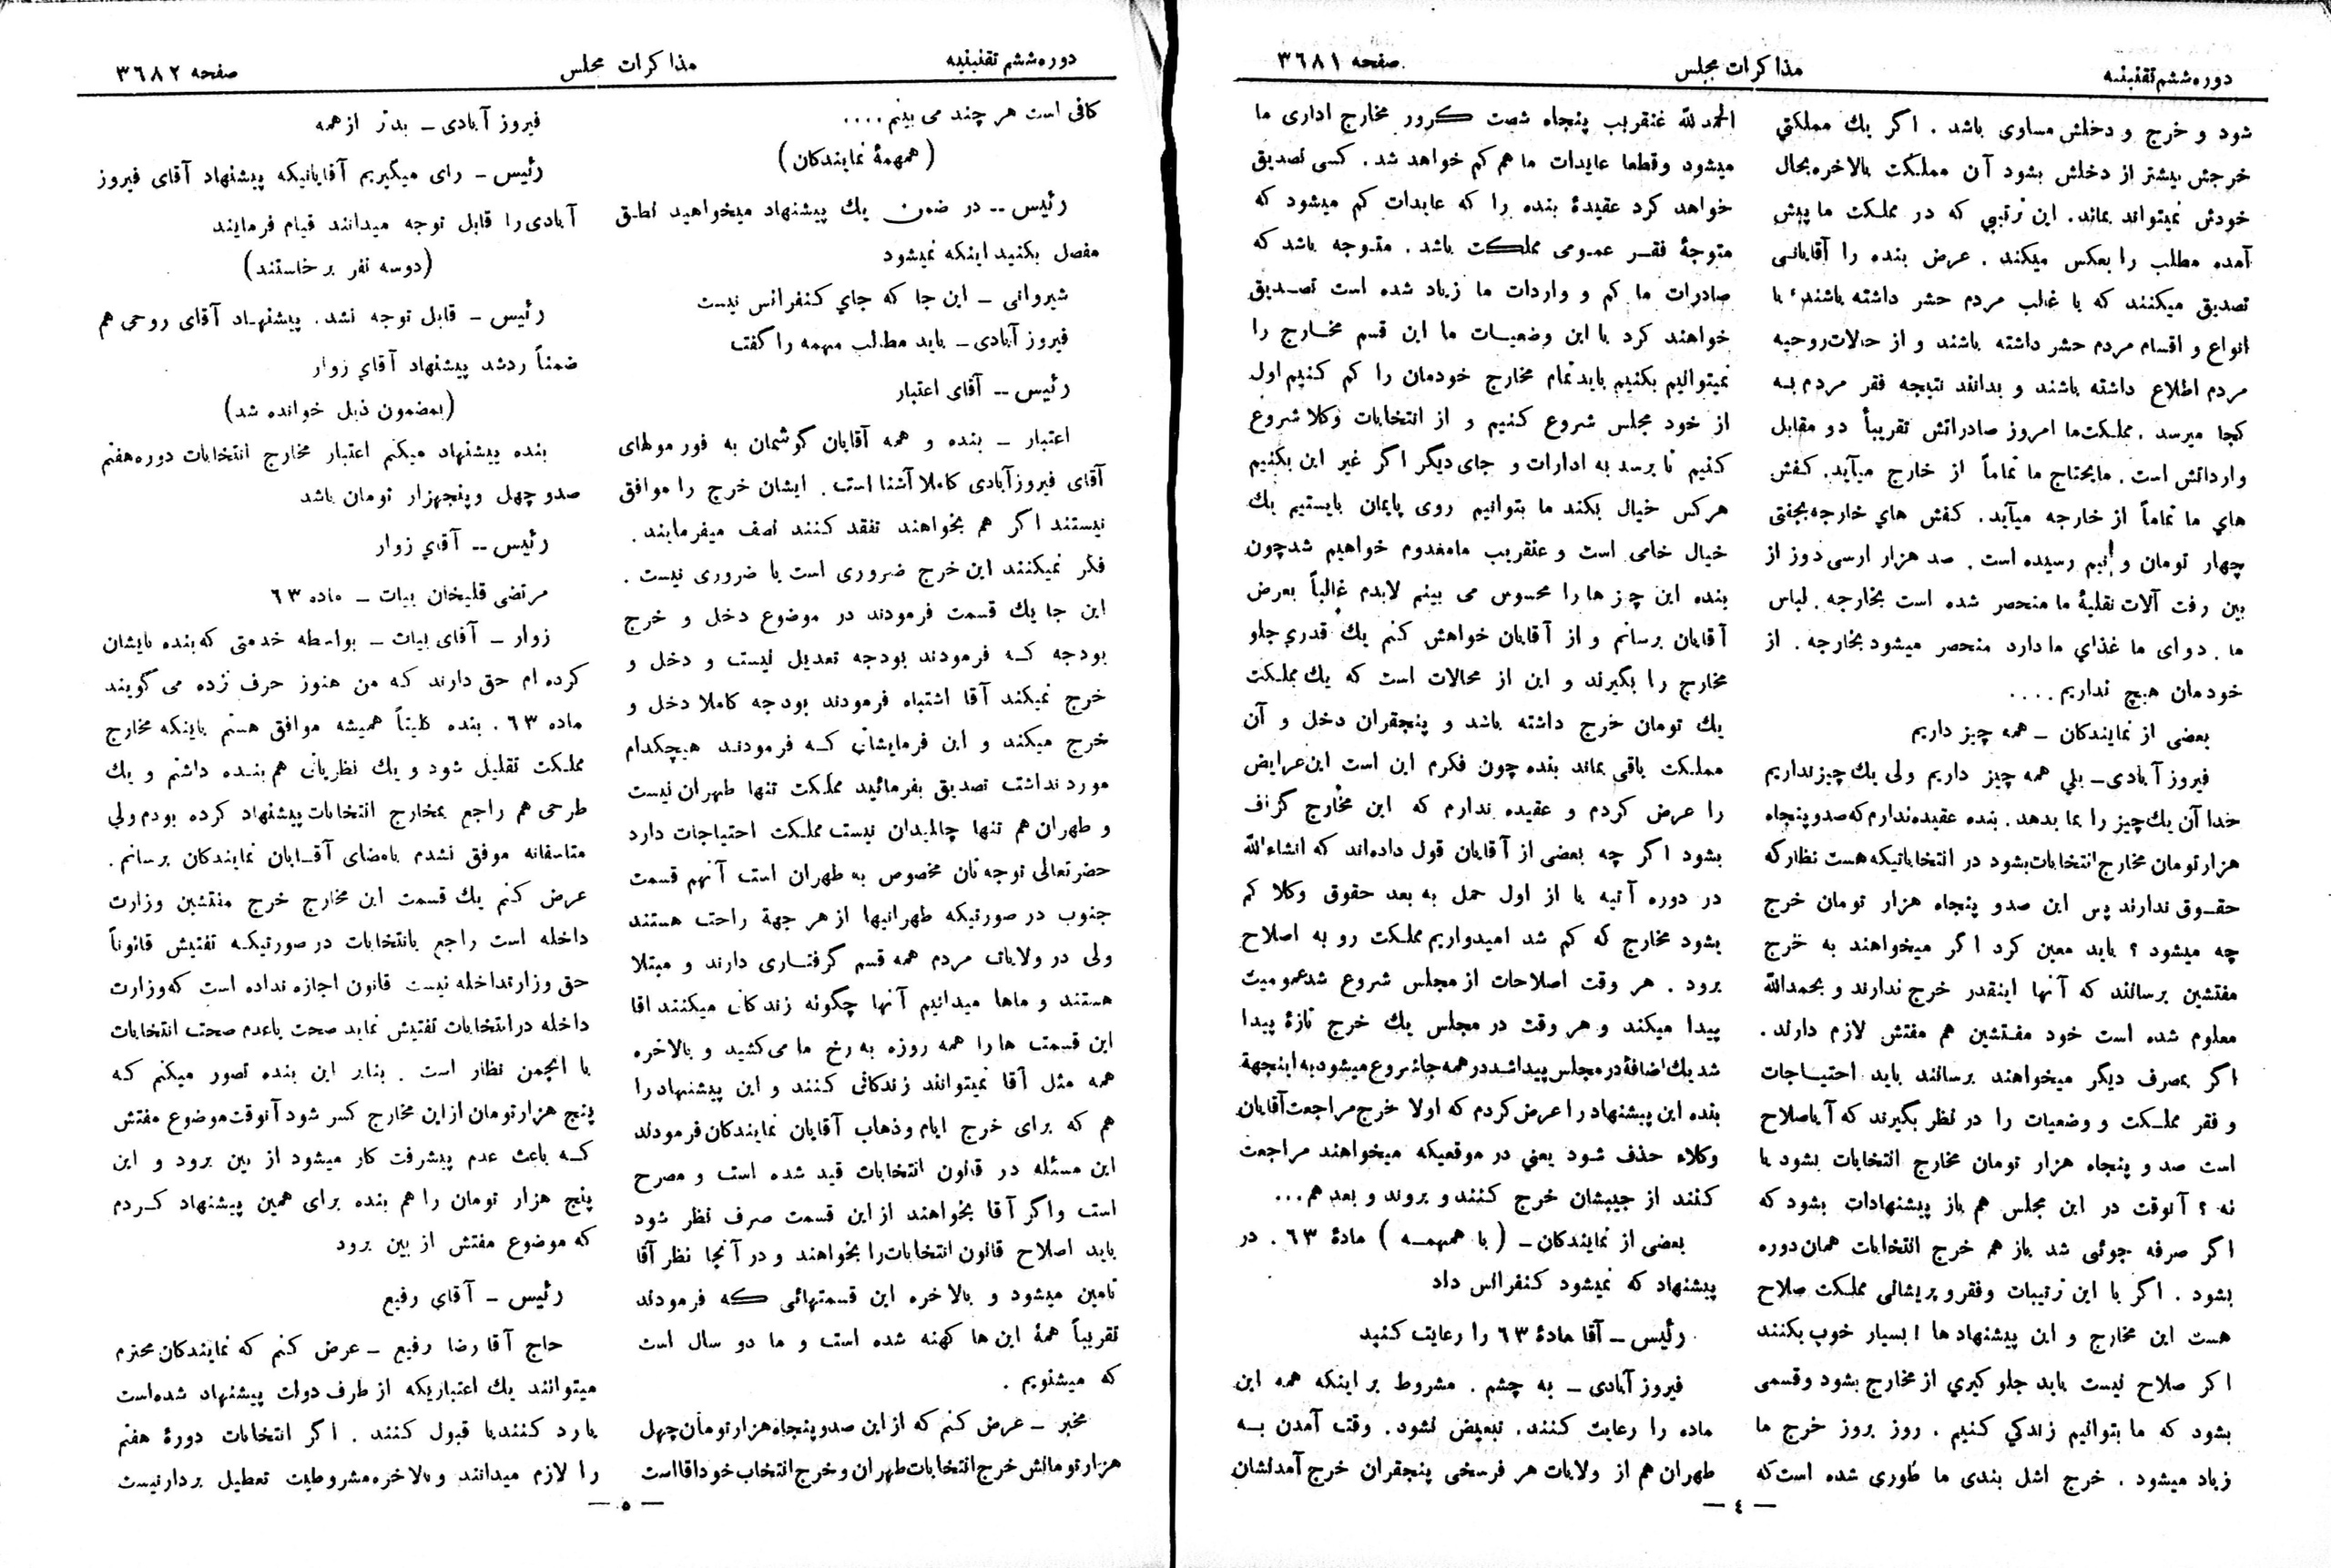 دوره‌ششم تقنینیه
مذاکرات مجلس
صفحه ۳۶۸۱
شود و خرج و دخلش مساوی باشد . اگر یك مملکتي
خرجش بیشتر از دخلش بشود آن مملکت بالاخره بحال
خودش نمیتواند بماند . این ترتیبي که در مملکت ما پیش
آمده مطلب را بعکس میکند . عرض بنده را آقایانی
تصدیق میکنند که با غالب مردم حشر داشته باشند ، با
انواع و اقسام مردم حشر داشته باشند و از حالات روحیه
مردم اطلاع داشته باشند و بدانند نتیجه فقر مردم به
کجا میرسد . مملکت‌ما امروز صادراتش تقریباً دو مقابل
وارداتش است . مایحتاج ما تماماً از خارج میآید . کفش
هاي ما تماماً از خارجه میآید . کفش هاي خارجه بجفتی
چهار تومان و نیم رسیده است . صد هزار ارسی دوز از
بین رفت آلات نقلیهٔ ما منحصر شده است بخارجه . لباس
ما . دوای ما غذاي ما دارد منحصر میشود بخارجه . از
خودمان هیچ نداریم . . . .
بعضی از نمایندکان ــ همه چیز داریم
فیروز آبادی ــ بلي همه چیز داریم ولی یك چیز نداریم
خدا آن یك‌چیز را بما بدهد . بنده عقیده‌ندارم که صدو پنجاه
هزار تومان مخارج انتخابات بشود در انتخاباتیکه هست نظار که
حقوق ندارند پس این صدو پنجاه هزار تومان خرج
چه میشود ؟ باید معین کرد اگر میخواهند به خرج
مفتشین برسانند که آنها اینقدر خرج ندارند و بحمدالله
معلوم شده است خود مفتشین هم مفتش لازم دارند .
اگر بمصرف دیگر میخواهند برسانند باید احتیاجات
و فقر مملکت و وضعیات را در نظر بگیرند که آیا صلاح
است صد و پنجاه هزار تومان مخارج انتخابات بشود یا
نه ؟ آنوقت در این مجلس هم باز پیشنهادات بشود که
اگر صرفه جوئی شد باز هم خرج انتخابات همان دوره
بشود . اگر با این ترتیبات و فقر و پریشانی مملکت صلاح
هست این مخارج و این پیشنهاد ها ! بسیار خوب بکنند
اکر صلاح نیست باید جلو گیري از مخارج بشود و قسمی
بشود که ما بتوانیم زندگي کنیم . روز بروز خرج ما
زیاد میشود . خرج اشل بندی ما طوری شده است که
الحمدلله عنقریب پنجاه شصت کرور مخارج اداری ما
میشود و قطعا عایدات ما هم کم خواهد شد . کسی تصدیق
خواهد کرد عقیدهٔ بنده را که عایدات کم میشود که
متوجهٔ فقر عمومی مملکت باشد . متوجه باشد که
صادرات ما کم و واردات ما زیاد شده است تصدیق
خواهند کرد با این وضعیات ما این قسم مخارج را
نمیتوانیم بکنیم باید تمام مخارج خودمان را کم کنیم اول
از خود مجلس شروع کنیم و از انتخابات وکلا شروع
کنیم تا برسد به ادارات و جای دیگر اگر غیر این بکنیم
هرکس خیال بکند ما بتوانیم روی پایمان بایستیم یك
خیال خامی است و عنقریب ما معدوم خواهیم شد چون
بنده این چیزها را محسوس می بینم لابدم غالباً بعرض
آقایان برسانم و از آقایان خواهش کنم یك قدري جلو
مخارج را بگیرند و این از محالات است که یك مملکت
یك تومان خرج داشته باشد و پنجقران دخل و آن
مملکت باقی بماند بنده چون فکرم این است این عرایض
را عرض کردم و عقیده ندارم که این مخارج گزاف
بشود اگر چه بعضی از آقایان قول داده‌اند که انشاءالله
در دوره آتیه یا از اول حمل به بعد حقوق وکلا کم
بشود مخارج که کم شد امیدواریم مملکت رو به اصلاح
برود . هر وقت اصلاحات از مجلس شروع شد عمومیت
پیدا میکند و هر وقت در مجلس یك خرج تازهٔ پیدا
شد یك اضافهٔ در مجلس پیدا شد در همه جا شروع میشود به اینجهة
بنده این پیشنهاد را عرض کردم که اولا خرج مراجعت آقایان
وکلاء حذف شود یعني در موقعیکه میخواهند مراجعت
کنند از جیبشان خرج کنند و بروند و بعد هم ...
بعضی از نمایندکان ــ ( با همهمه ) مادهٔ ۶۳ . در
پیشنهاد که نمیشود کنفرانس داد
رئیس ــ آقا مادهٔ ۶۳ را رعایت کنید
فیروز آبادی ــ به چشم . مشروط بر اینکه همه این
ماده را رعایت کنند . تبعیض نشود . وقت آمدن به
طهران هم از ولایات هر فرسخی پنجقران خرج آمدنشان
— ٤ —
دوره‌ششم تقنینیه
مذاکرات مجلس
صفحه ۳۶۸۲
کافی است هر چند می بینم . . . .
( همهمهٔ نمایندکان )
رئیس ــ در ضمن یك پیشنهاد میخواهید نطق
مفصل بکنید اینکه نمیشود
شیروانی ــ این جا که جاي کنفرانس نیست
فیروز آبادی ــ باید مطالب مهمه را گفت
رئیس ــ آقای اعتبار
اعتبار ــ بنده و همه آقایان گوشمان به فورمولهای
آقای فیروزآبادی کاملا آشنا است . ایشان خرج را موافق
نیستند اگر هم بخواهند تفقد کنند نصف میفرمایند .
فکر نمیکنند این خرج ضروری است یا ضروری نیست .
این جا یك قسمت فرمودند در موضوع دخل و خرج
بودجه که فرمودند بودجه تعدیل نیست و دخل و
خرج نمیکند آقا اشتباه فرمودند بودجه کاملا دخل و
خرج میکند و این فرمایشان که فرمودند هیچکدام
مورد نداشت تصدیق بفرمائید مملکت تنها طهران نیست
و طهران هم تنها چالمیدان نیست مملکت احتیاجات دارد
حضرتعالی توجه تان مخصوص به طهران است آنهم قسمت
جنوب در صورتیکه طهرانیها از هر جهة راحت هستند
ولی در ولایات مردم همه قسم گرفتاری دارند و مبتلا
هستند و ماها میدانیم آنها چگونه زندکانی میکنند اقا
این قسمت ها را همه روزه به رخ ما می کشید و بالاخره
همه مثل آقا نمیتوانند زندکانی کنند و این پیشنهاد را
هم که برای خرج ایام و ذهاب آقایان نمایندکان فرمودند
این مسئله در قانون انتخابات قید شده است و مصرح
است واگر آقا بخواهند از این قسمت صرف نظر شود
باید اصلاح قانون انتخابات‌را بخواهند و در آنجا نظر آقا
تامین میشود و بالاخره این قسمتهائی که فرمودند
تقریباً همهٔ این ها کهنه شده است و ما دو سال است
که میشنویم .
مخبر ــ عرض کنم که از این صدو پنجاه هزار تومان چهل
هزار تومانش خرج انتخابات طهران و خرج انتخاب خود اقا است
فیروز آبادی ــ بدتر از همه
رئیس ــ رای میگیریم آقایانیکه پیشنهاد آقای فیروز
آبادی را قابل توجه میدانند قیام فرمایند
(دوسه نفر برخاستند)
رئیس ــ قابل توجه نشد . پیشنهاد آقای روحی هم
ضمناً ردشد پیشنهاد آقاي زوار
(بمضمون ذیل خوانده شد)
بنده پیشنهاد میکنم اعتبار مخارج انتخابات دوره هفتم
صدو چهل وپنجهزار تومان باشد
رئیس ــ آقاي زوار
مرتضی قلیخان بیات ــ ماده ۶۳
زوار ــ آقای بیات ــ بواسطه خدمتی که بنده بایشان
کرده ام حق دارند که من هنوز حرف نزده می گویند
ماده ۶۳ . بنده کلیتاً همیشه موافق هستم باینکه مخارج
مملکت تقلیل شود و یك نظریاتی هم بنده داشتم و یك
طرحی هم راجع بمخارج انتخابات پیشنهاد کرده بودم ولي
متاسفانه موفق نشدم بامضای آقایان نمایندکان برسانم .
عرض کنم یك قسمت این مخارج خرج مفتشین وزارت
داخله است راجع بانتخابات در صورتیکه تفتیش قانوناً
حق وزارتداخله نیست قانون اجازه نداده است که وزارت
داخله در انتخابات تفتیش نماید صحت یا عدم صحت انتخابات
با انجمن نظار است . بنابر این بنده تصور میکنم که
پنج هزار تومان از این مخارج کسر شود آنوقت موضوع مفتش
که باعث عدم پیشرفت کار میشود از بین برود و این
پنج هزار تومان را هم بنده برای همین پیشنهاد کردم
که موضوع مفتش از بین برود
رئیس ــ آقاي رفیع
حاج آقا رضا رفیع ــ عرض کنم که نمایندکان محترم
میتوانند یك اعتباریکه از طرف دولت پیشنهاد شده‌است
یا رد کنند یا قبول کنند . اگر انتخابات دورهٔ هفتم
را لازم میدانند و بالاخره مشروطیت تعطیل بردار نیست
— ٥ —